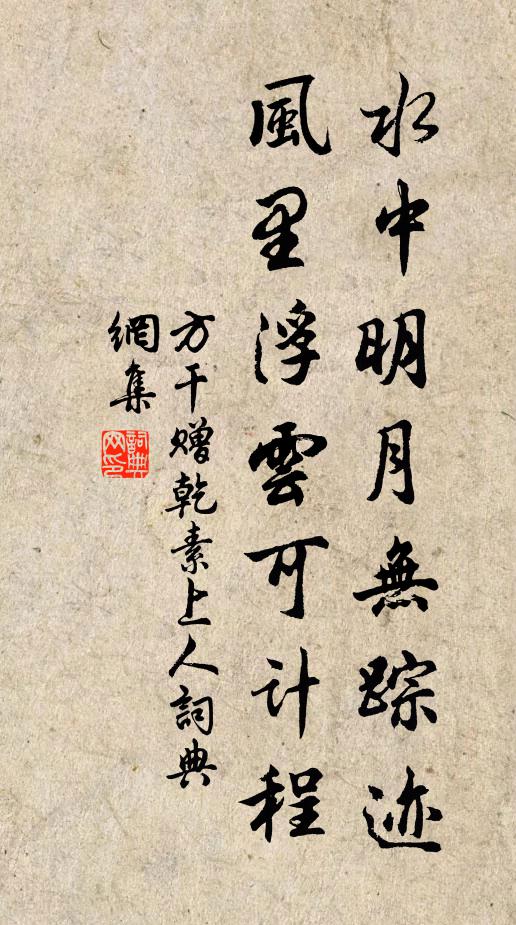 水中明月無踪迹
風里浮雲可計程
方干赠乾素上人詞典
網集
詞典網印